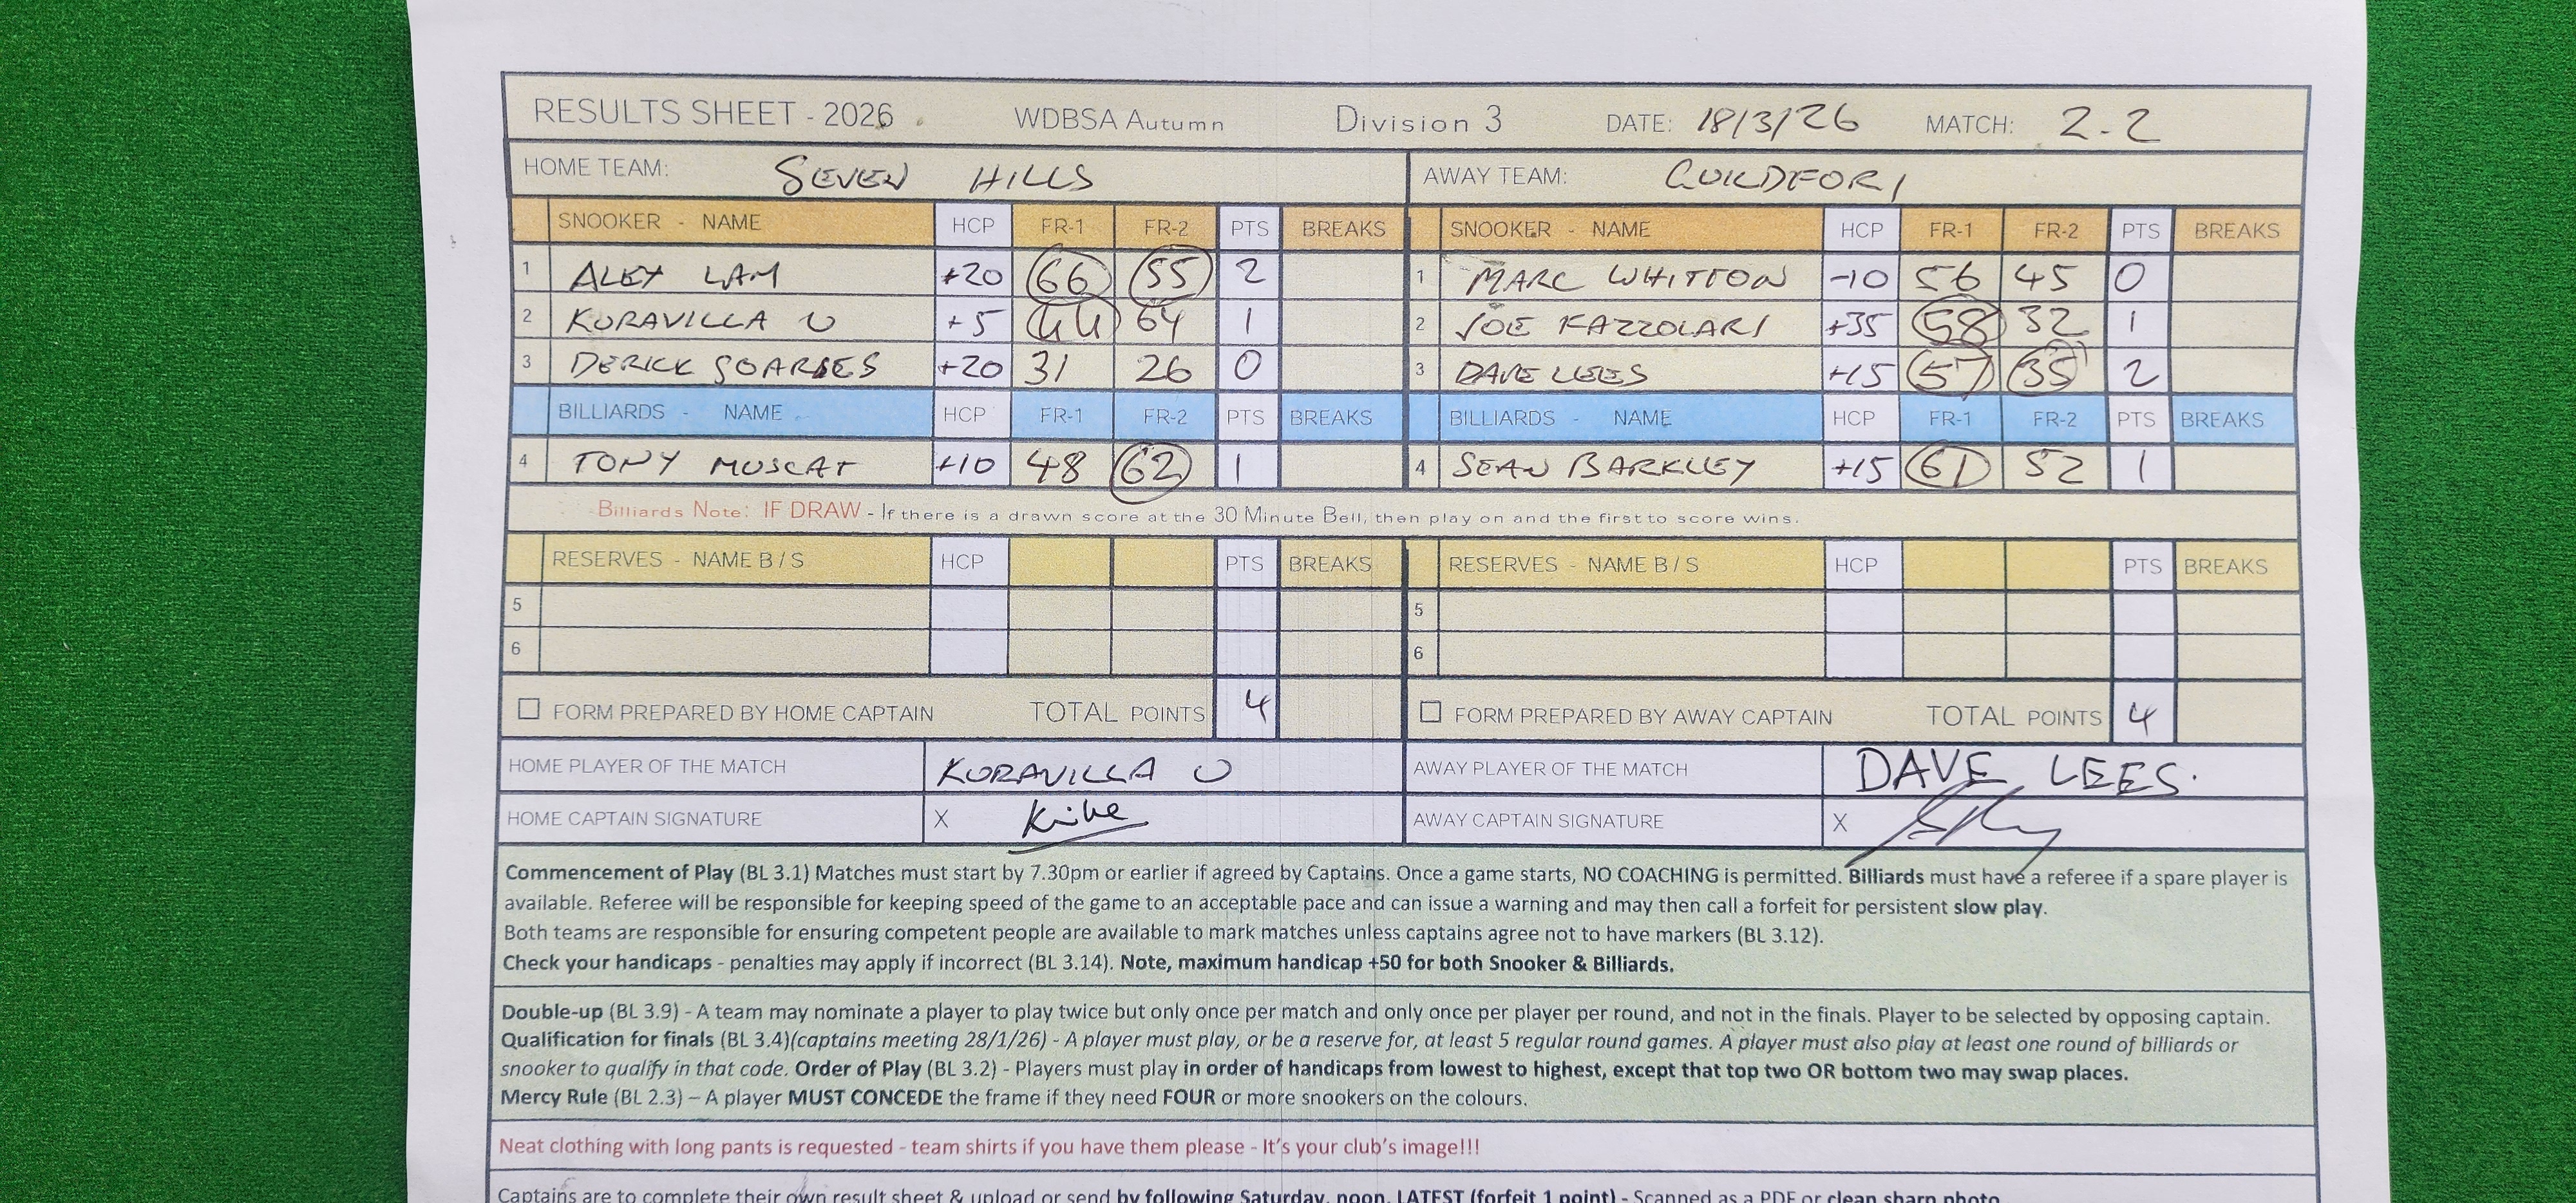 RESULTS SHEET - 2026 WDBSA Autumn Division 3 DATE: 18/3/26 MATCH: 2-2
HOME TEAM: SEVEN HILLS AWAY TEAM: GUILDFORD
SNOOKER - NAME HCP FR-1 FR-2 PTS BREAKS SNOOKER - NAME HCP FR-1 FR-2 PTS BREAKS
1 ALEX LAM +20 66 55 2 1 MARC WHITTON -10 56 45 0
2 KURAVILLA U +5 44 64 1 2 JOE FAZZOLARI +35 58 32 1
3 DERICK SOARES +20 31 26 0 3 DAVE LEES +15 57 35 2
BILLIARDS - NAME HCP FR-1 FR-2 PTS BREAKS BILLIARDS - NAME HCP FR-1 FR-2 PTS BREAKS
4 TONY MUSCAT +10 48 62 1 4 SEAN BARKLEY +15 61 52 1
Billiards Note: IF DRAW - If there is a drawn score at the 30 Minute Bell, then play on and the first to score wins.
RESERVES - NAME B / S HCP PTS BREAKS RESERVES - NAME B / S HCP PTS BREAKS
5 5
6 6
FORM PREPARED BY HOME CAPTAIN TOTAL POINTS 4 FORM PREPARED BY AWAY CAPTAIN TOTAL POINTS 4
HOME PLAYER OF THE MATCH KURAVILLA U AWAY PLAYER OF THE MATCH DAVE LEES.
HOME CAPTAIN SIGNATURE X AWAY CAPTAIN SIGNATURE X
Commencement of Play (BL 3.1) Matches must start by 7.30pm or earlier if agreed by Captains. Once a game starts, NO COACHING is permitted. Billiards must have a referee if a spare player is
available. Referee will be responsible for keeping speed of the game to an acceptable pace and can issue a warning and may then call a forfeit for persistent slow play.
Both teams are responsible for ensuring competent people are available to mark matches unless captains agree not to have markers (BL 3.12).
Check your handicaps - penalties may apply if incorrect (BL 3.14). Note, maximum handicap +50 for both Snooker & Billiards.
Double-up (BL 3.9) - A team may nominate a player to play twice but only once per match and only once per player per round, and not in the finals. Player to be selected by opposing captain.
Qualification for finals (BL 3.4)(captains meeting 28/1/26) - A player must play, or be a reserve for, at least 5 regular round games. A player must also play at least one round of billiards or
snooker to qualify in that code. Order of Play (BL 3.2) - Players must play in order of handicaps from lowest to highest, except that top two OR bottom two may swap places.
Mercy Rule (BL 2.3) – A player MUST CONCEDE the frame if they need FOUR or more snookers on the colours.
Neat clothing with long pants is requested - team shirts if you have them please - It's your club's image!!!
Captains are to complete their own result sheet & upload or send by following Saturday, noon, LATEST (forfeit 1 point) - Scanned as a PDF or clean sharp photo